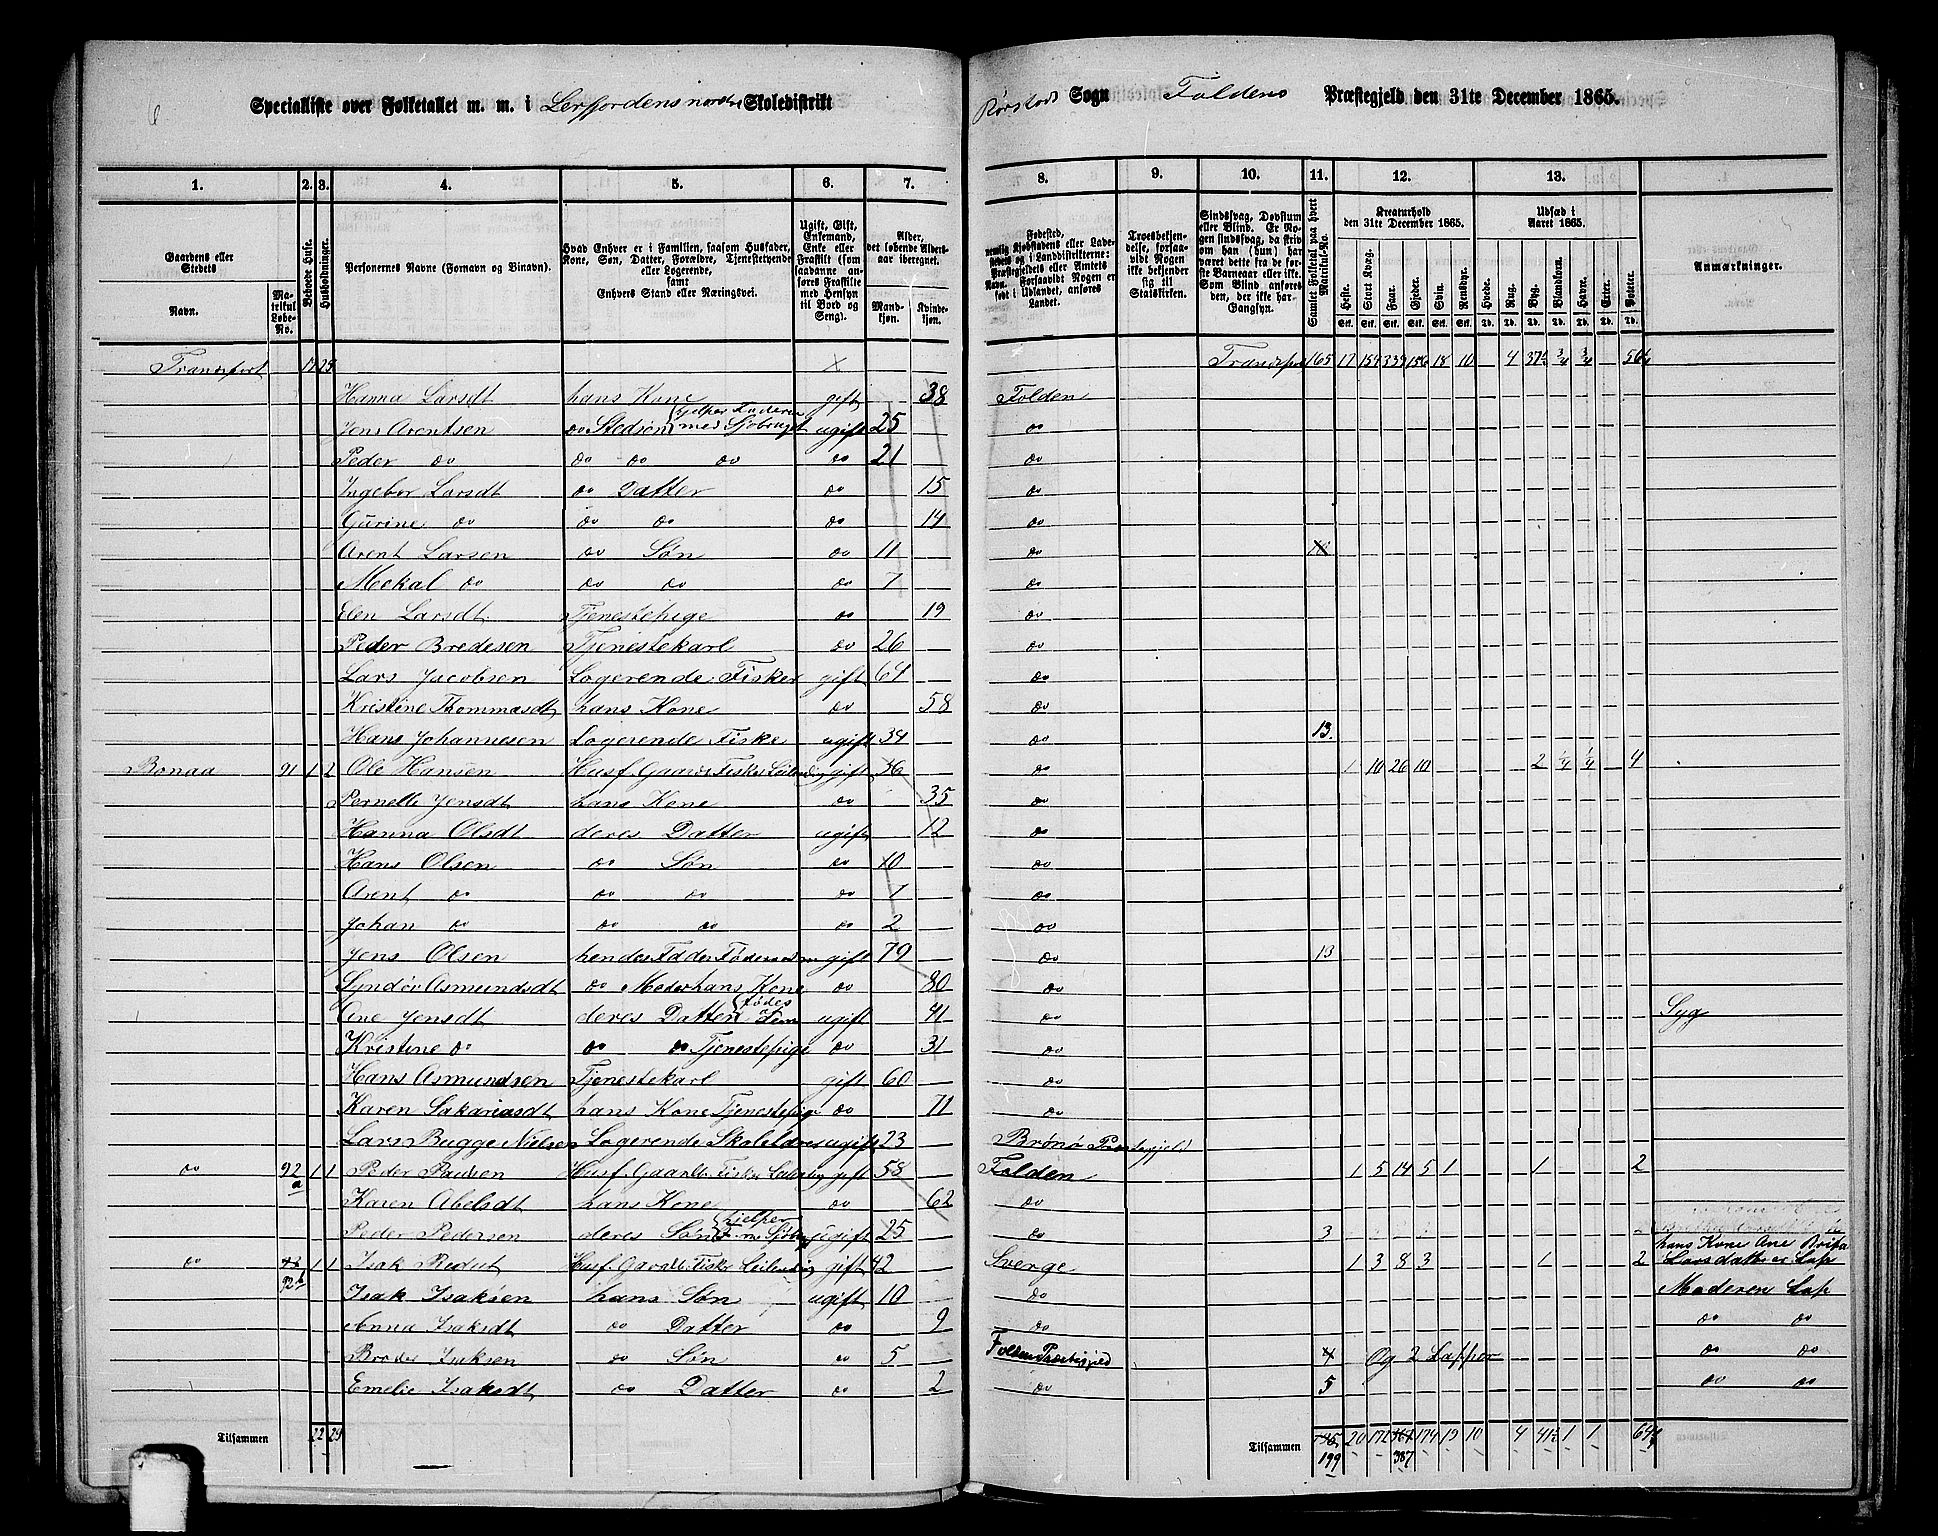 6
Specialliste over Folketallet m. m. i Lerfjordens nordre Skoledistrikt
Rørstad Sogn Foldens Præstegjeld den 31te December 1865.
1. 2. 3. 4. 5. 6. 7. 8. 9. 10. 11. 12. 13.
Gaardens eller Stedets
Navn.
Matrikul Løbe-No.
Beboede Huse.
Husholdninger.
Personernes Navne (Fornavn og Binavn).
Hvad Enhver er i Familien, saasom Husfader, Kone, Søn, Datter, Forældre, Tjenestetyende eller Logerende, samt Enhvers Stand eller Næringsvei.
Ugift, Gift, Enkemand, Enke eller Fraskilt (som saadanne anføres Fraskilte med Hensyn til Bord og Seng).
Alder, det løbende Aldersaar iberegnet.
Mandkjøn. Kvindekjøn.
Fødested, nemlig Kjøbstadens eller Ladestedets eller i Landdistrikterne: Præstegjeldets eller Amtets Navn. Forsaavidt Nogen er født i Udlandet, anføres Landet.
Troesbekjendelse, forsaavidt Nogen ikke bekjender sig til Statskirken.
Sindssvag, Døvstum eller Blind. Er Nogen sindssvag, da skriv om han (hun) har været dette fra de første Barneaar eller ikke. Som Blind anføres den, der ikke har Gangsyn.
Samlet Folketal paa hvert Matrikul-No.
Kreaturhold den 31te December 1865.
Heste. Stort Kvæg. Faar. Gjeder. Svin. Rensdyr.
Udsæd i Aaret 1865.
Hvede. Rug. Byg. Blandkorn. Havre. Erter. Poteter.
Anmærkninger.
Transport Transport 165 17 154 339 156 18 10 4 ¾ ¾
Hanna Larsdt hans Kone gift 38 Folden
Jens Arentsen do Stedsøn hjelper Faderen med Sjøbruget ugift 25 do
Peder do do do do do 21 do
Ingebor Larsdt do Datter do 15 do
Gurine do do do do 14 do
Arent Larsen do Søn do 11 do 10
Mekal do do do do 7 do
Elen Larsdt Tjenestepige do 19 do
Peder Bredesen Tjenestekarl do 26 do
Lars Jacobsen Logerende Fisker gift 64 do
Kristine Thommasdt hans Kone do 58 do
Hans Johannesen Logerende Fiske ugift 34 do 13.
Bonaa 91 1 2 Ole Hansen Husf. Gaardb Fisker Leilending gift 36 do 1 10 26 10 2 ¼ ¼ 4
Pernelle Jensdt hans Kone do 35 do
Hanna Olsdt deres Datter ugift 12 do
Hans Olsen do Søn do 10 do
Arent do do do do 7 do
Johan do do do do 2 do
Jens Olsen hendes Fader Føderaadsm gift 79 do 13
Syndør Asmundsdt do Moder hans Kone do 80 do
Ane Jensdt deres Datter fødes ugift 41 do Syg
Kristine do do do Tjenestepige do 31 do
Hans Asmundsen Tjenestekarl gift 60 do
Karen Sakariasdt hans Kone Tjenestepige do 71 do
Lars Bugge Nielsen Logerende Skolelærer ugift 23 Brønø Præstegjeld
do 92 a 1 1 Peder Paulsen Husf. Gaardb. Fisker Leilending gift 58 Folden 1 5 14 5 1 1 2
Karen Abelsdt hans Kone do 62 do
Peder Pedersen deres Søn hjelper F. m. Sjøbrug ugift 25 do 3
hans Kone Ane Brita
do 92 b 1 1 Isak Redut Husf. Gaardb. Fisker Leilending gift 42 Sverge 1 3 8 3 1 2 Larsdatter er Lap
Isak Isaksen hans Søn ugift 10 do Moderen Lap
Anna Isaksdt do Datter do 9 do do do
Broder Isaksen do Søn do 5 Folden Præstegjeld 4 Og 2 Lapper do do
Emelie Isaksdt do Datter do 2 do 5 do do
Tilsammen 22 29 Tilsammen 199 20 172 387 174 19 10 4 41½ 1 1